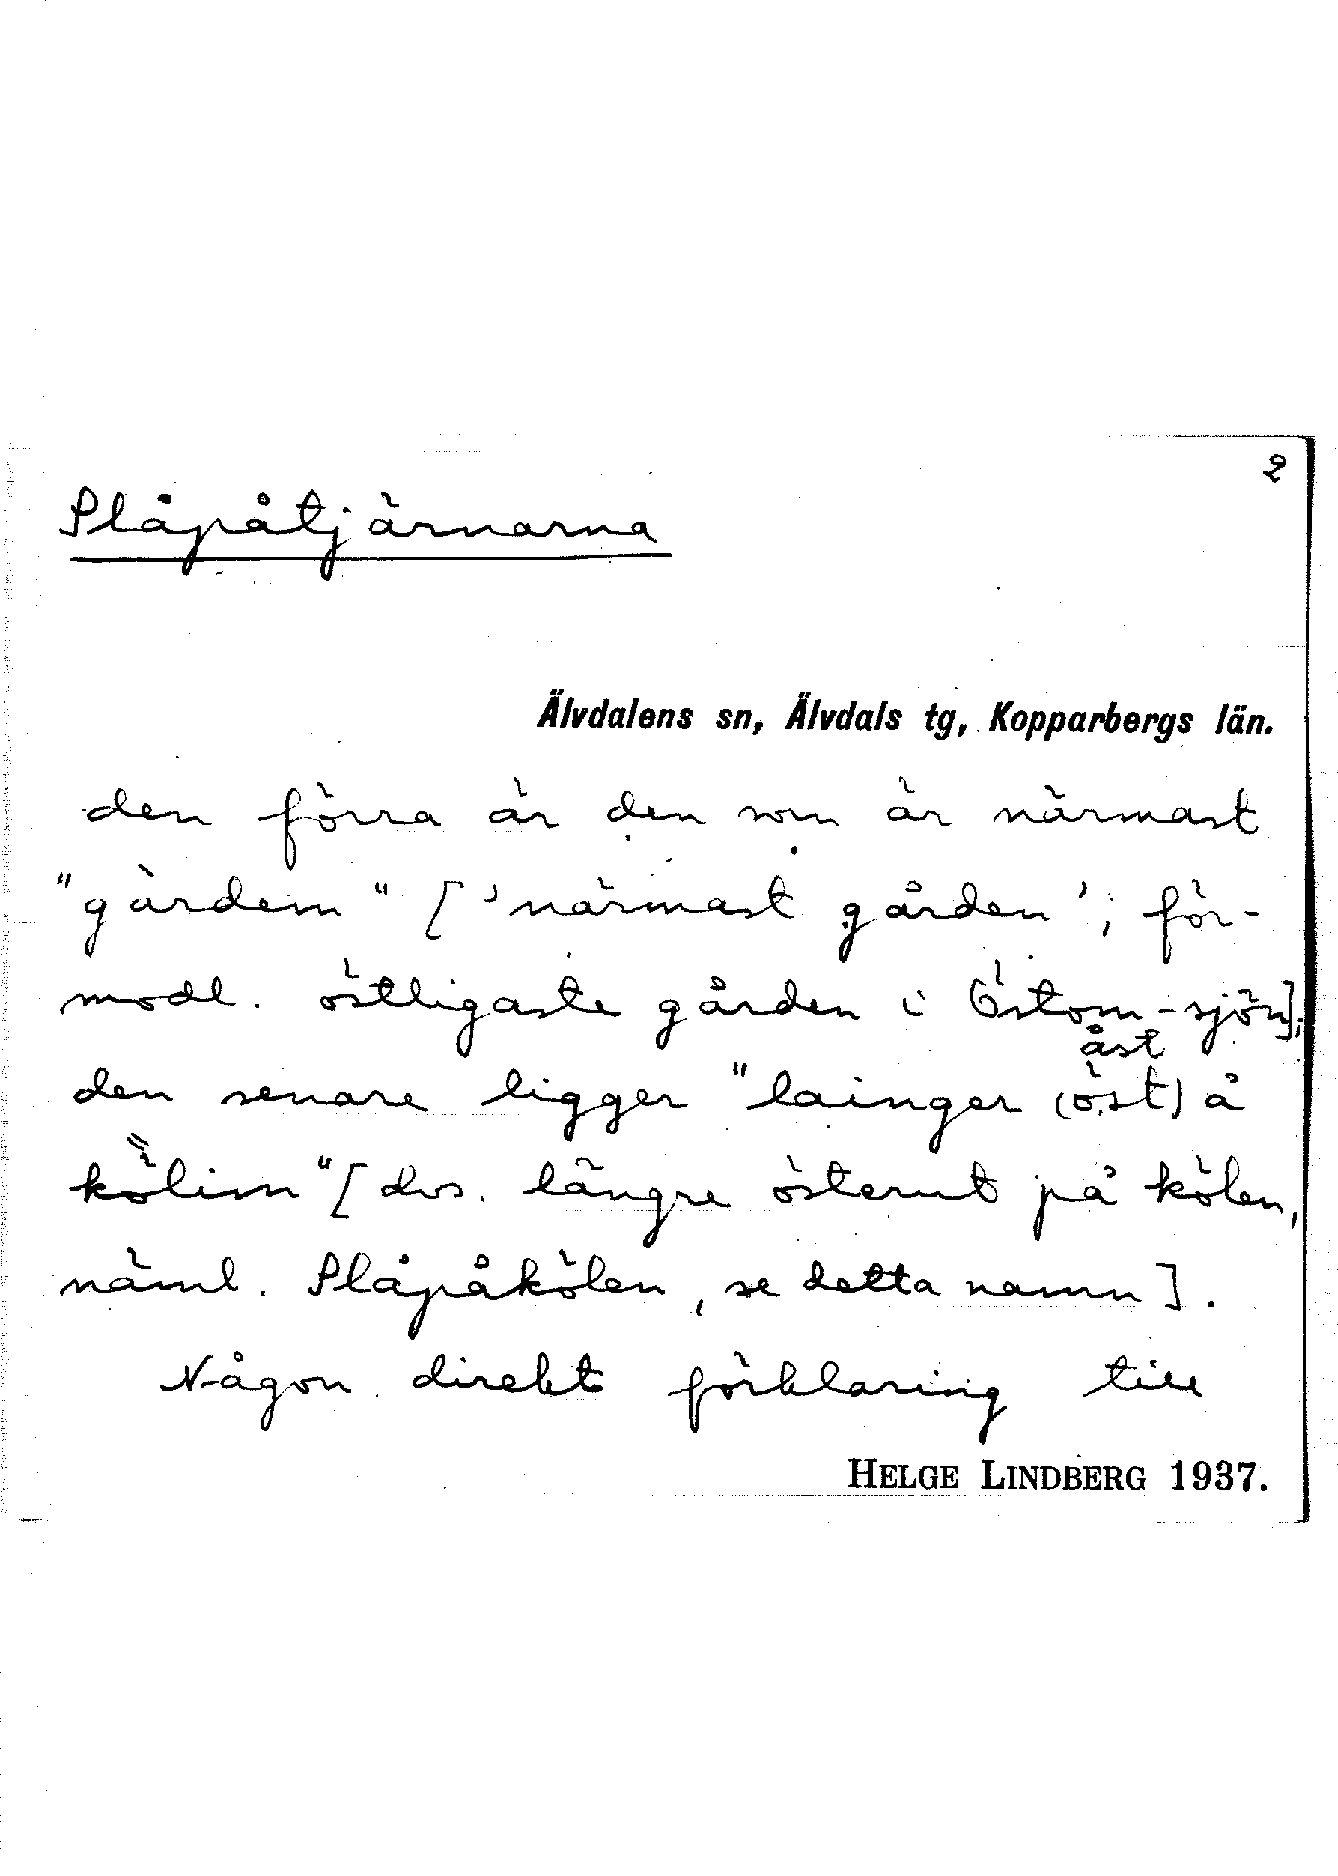 2
Plåpåtjärnarna
Älvdalens sn, Älvdals tg, Kopparbergs län.
den förra är den som är närmast
"gärdem" ['närmast gården'; för-
modl. östligaste gården i Östom-sjön];
åst
den senare ligger "lainger (öst) å
kölim" [dvs. längre österut på kölen,
näml. Plåpåkölen, se detta namn].
Någon direkt förklaring till
HELGE LINDBERG 1937.